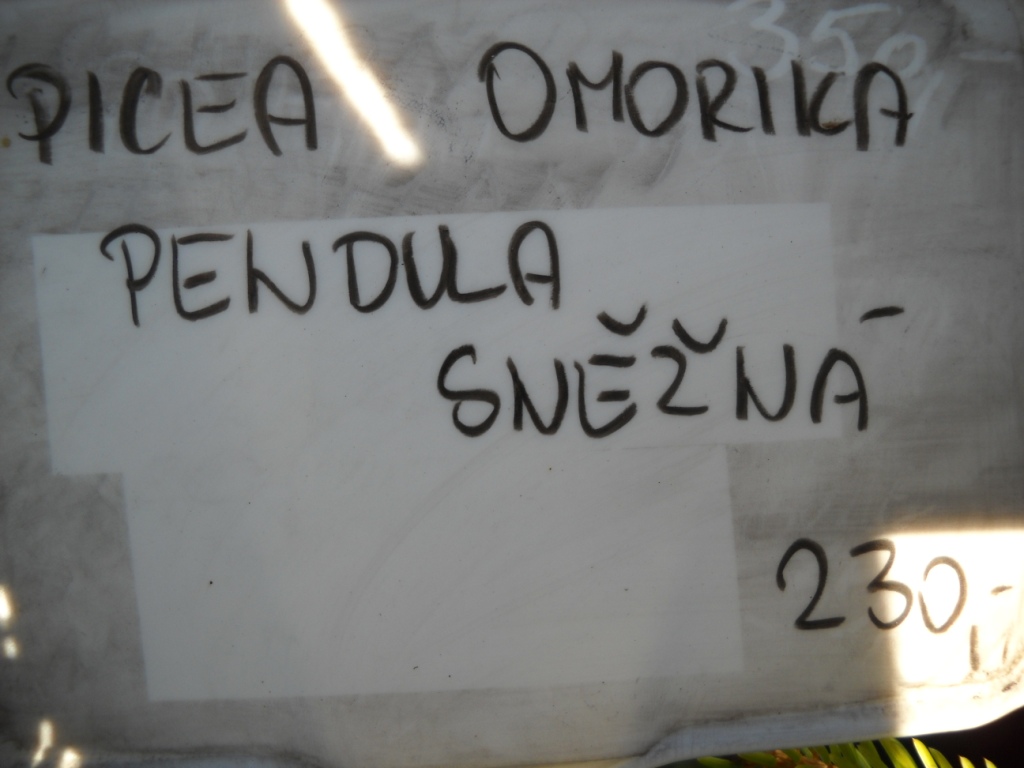 350,-
PICEA OMORIKA
PENDULA
SNĚŽNÁ
230,-